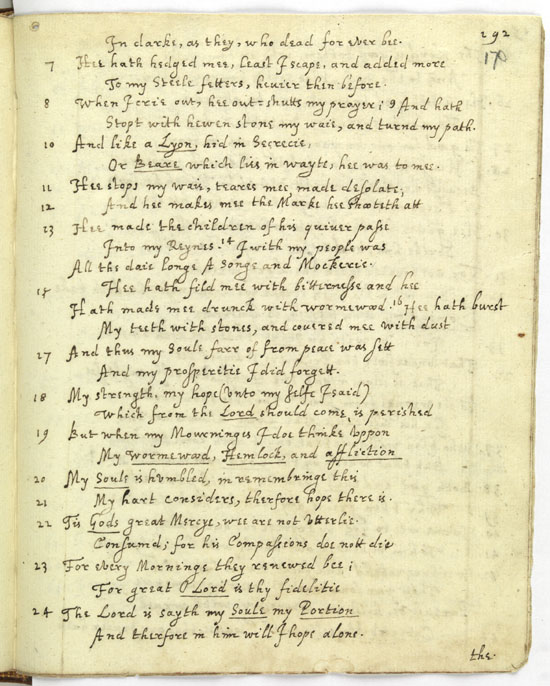 292
170
In darke, as they, who dead for ever bee.
7 Hee hath hedged mee, least I scape, and added more
To my Steele fetters, heuier then before.
8 When I crie out, hee out=shutts my prayer; 9 And hath
Stopt with hewen stone my waie, and turnd my path.
10 And like a Lyon, hid in Secrecie,
Or Beare which lies in wayte, hee was to mee.
11 Hee stops my waie, teares mee made desolate,
12 And hee makes mee the Marke hee shooteth att
13 Hee made the children of his quiver passe
Into my Reynes. 14 I with my people was
All the daie longe A Songe and Mockerie.
15 Hee hath fild mee with bitternesse and hee
Hath made mee drunck with wormewood. 16 Hee hath burst
My teeth with stones, and covered mee with dust
17 And thus my Soule farr of from peace was sett
And my prosperitie I did forgett.
18 My strength, my hope (vnto my selfe I said)
Which from the Lord should come is perished
19 But when my Mourninges I doe thinke Vppon
My wormewood, Hemlock, and affliction
20 My Soule is humbled, in remembringe this
21 My hart considers, therfore hope there is.
22 Tis Gods great Mercye, wee are not Vtterlie.
Consumd; for his Compassions doe nott die
23 For every Morninges they renewed bee;
For great O Lord is thy fidelitie
24 The Lord is sayth my Soule my Portion
And therfore in him will I hope alone.
the.